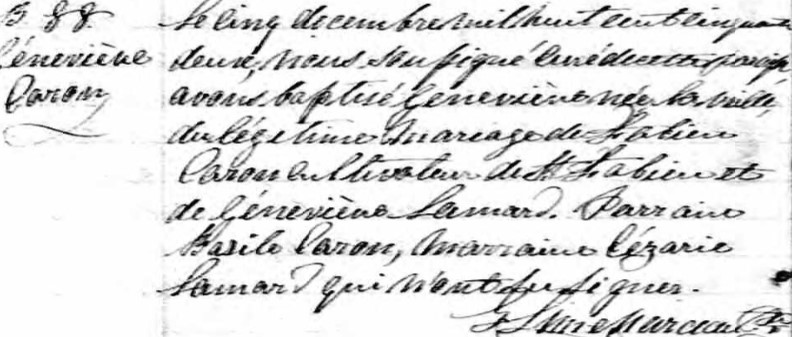 B. 88.
Géneviève
Caron
Le cinq decembre mil huit cent cinquante
deux, nous soussigné curé de cette paroisse
avons baptisé Geneviève née la veille,
du légitime mariage de Fabien
Caron cultivateur de St Fabien et
de Géneviève Lamard. Parrain
Basile Caron, marraine Cézarie
Lamard qui n'ont pu signer.